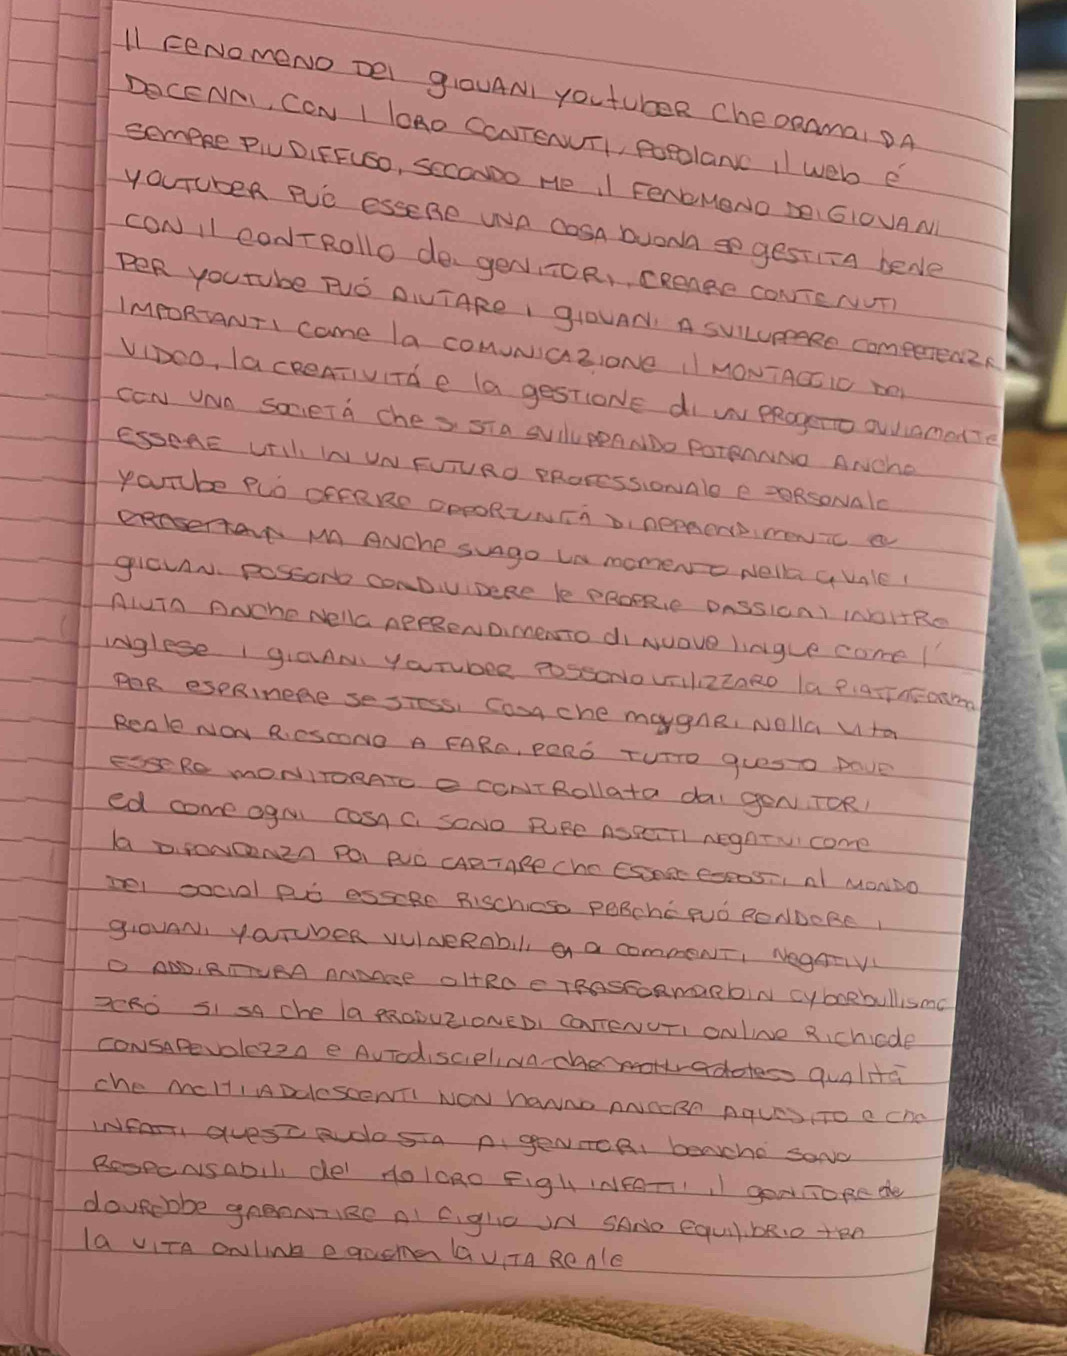 Il FENOMENO DEI gIOVANI youtubeR che ORAMAI DA
DECENNI, CON I lORO CONTENUTI, POPOlANO il web é
SEMPRE PIÚ DIFFUSO, SECONDO ME il FENOMENO DEI GIOVANI
YOUTUBER PUÓ ESSERE UNA COSA buONA se gESTITA bene
CON il CONTROllO dei gENITORI, CREARE CONTENUTI
PER youtube PUÓ AIUTARE i gIOVANI A SVILUPPARE COMPETENZE
IMPORTANTI come la COMUNICAZIONE il MONTAGGIO DEI
VIDEO, la CREATIVITÁ e la gESTIONE di UN PROgETTO OVVIAMENTE
CON UNA SOCIETÁ che si STA SVILUPPANDO POTRANNO ANChe
ESSERE UTILI IN UN FUTURO PROFESSIONAle e PERSONAle
youtube PUÓ OFFRIRE OPPORTUNITÁ DI APPRENDIMENTO e
MA ANChe SVAGO UN momento Nella qUAle i
gIOVANI POSSONO CONDIVIDERE le PROPRIE PASSIONI INOLTRE
AIUTA ANChe Nella APPRENDIMENTO di NUOVE lingue come l'
inglese i gIOVANI YOUTUBER POSSONO UTILIZZARE la PIATTAFORMA
PER eSPRIMERE Se STESSI COSA che magARI Nella Vita
ReAle NON RIESCONO A FARE. PERÓ TUTTO questo DEVE
ESSERE MONITORATO e CONTROllata dai gENITORI
ed come ogNI COSA CI SONO PURE ASPETTI NEgATIVI come
la DIPENDENZA POI PUÓ CAPITARE Che ESSERE ESPOSTI Al MONDO
DEI SOCIAl PUÓ essere RISChIOSO PERChé PUÓ RENDERE i
gIOVANI YOUTUBER VUlNERABILI a COMMENTI NEgATIVI
O ADDIRITTURA ANDARE OlTRE e TRASFORMARBIN cyberbullismo
PERÓ SI SA Che la PRODUZIONE DI CONTENUTI ONlINE Richiede
CONSAPEVOlEZZA e AUTOdiscipliNA qualitá
Che MOLTI ADOlESCENTI NON hanno ANCORA AQUISITO e Che
INFATTI questo RUOlo STA AI gENITORI benché SONO
RESPONSABIlI dei lORO FIGLI INFATTI il gENITORE
dovrebbe gARANTIRE AI FIglIO UN SANO equilibRIO tra
la VITA ONlINE e la VITA ReAle